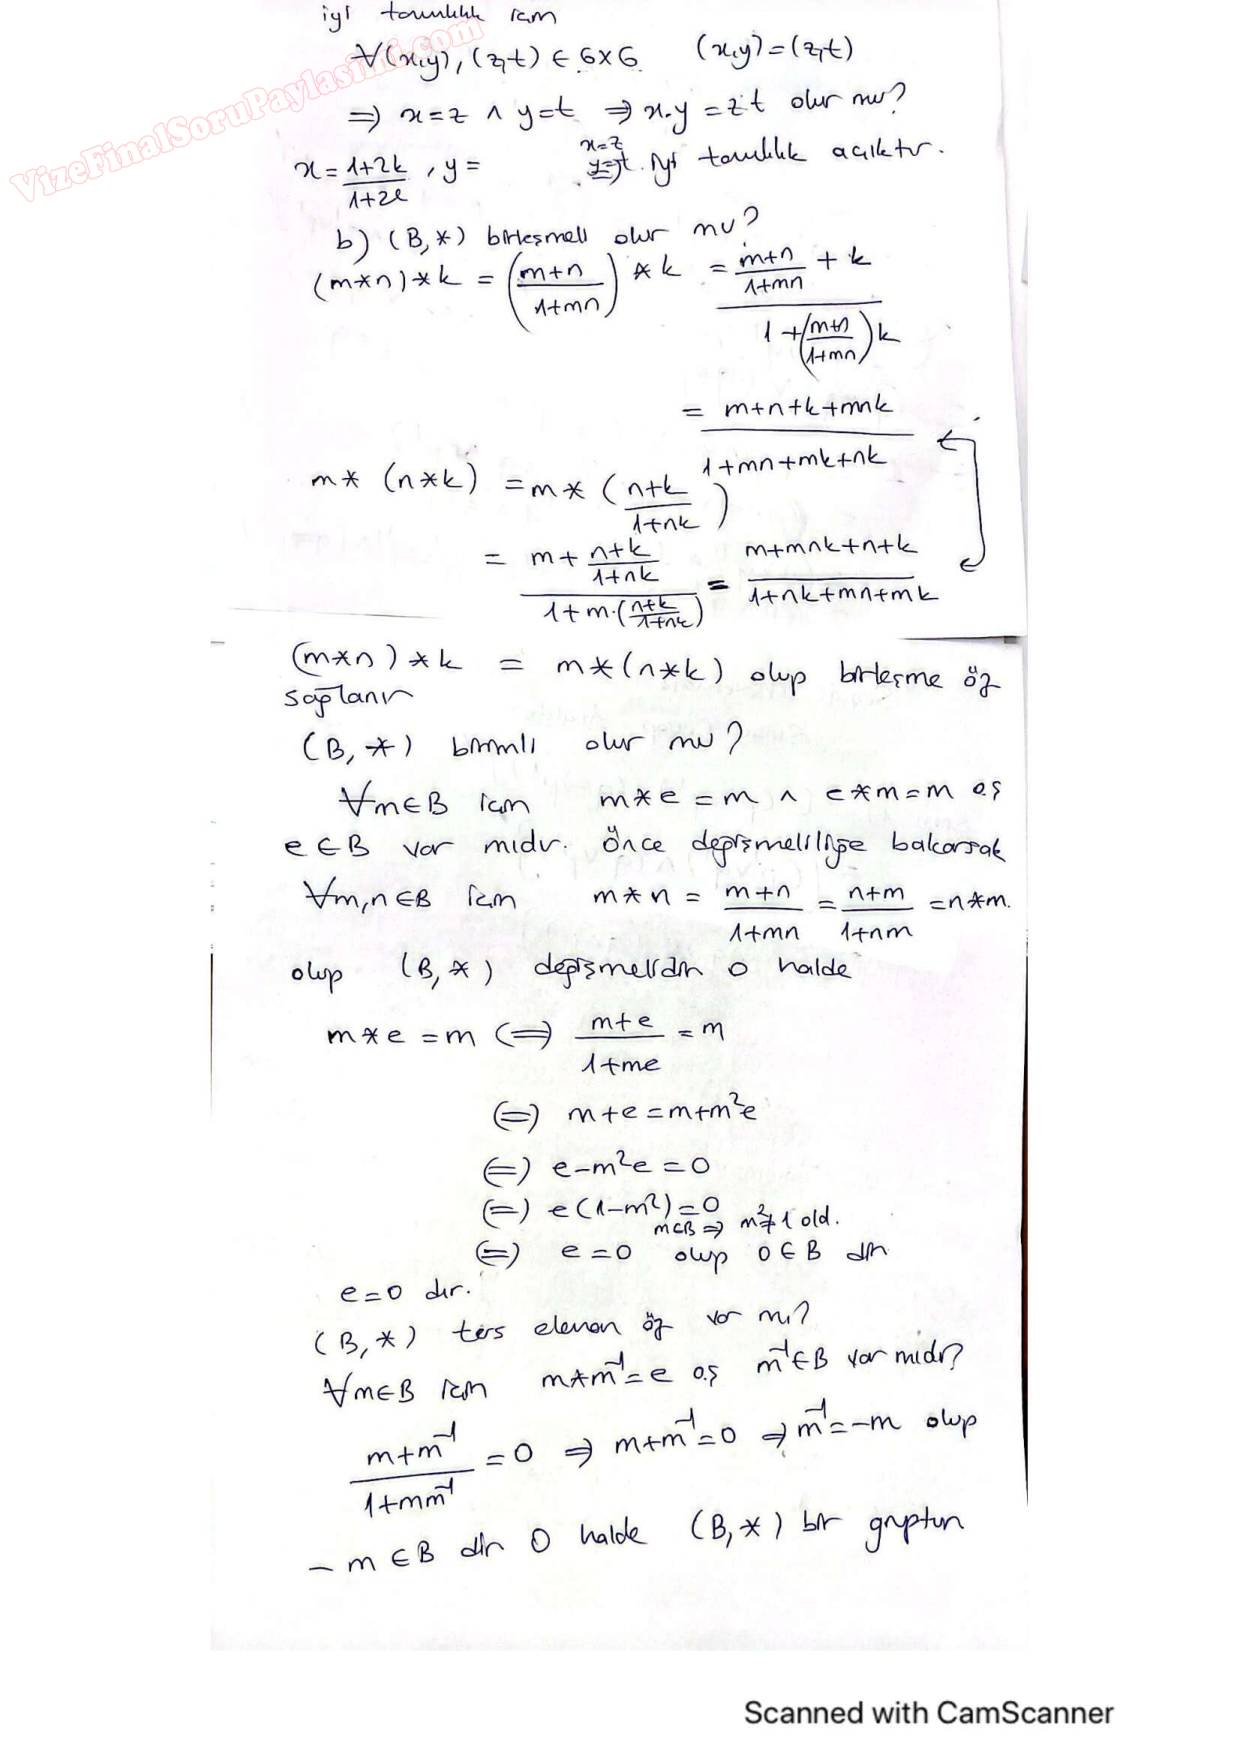 iyi tanımlılık için
∀(x,y), (z,t) ∈ G×G (x,y)=(z,t)
⇒ x=z ∧ y=t ⇒ x.y = z.t olur mu?
x=z
x = (1+2k)/(1+2l) , y = y=t. iyi tanımlılık açıktır.
VizeFinalSoruPaylasimi.com
b) (B,*) birleşmeli olur mu?
(m*n)*k = ((m+n)/(1+mn)) * k = ((m+n)/(1+mn) + k)/(1+((m+n)/(1+mn))k)
= (m+n+k+mnk)/(1+mn+mk+nk)
m* (n*k) = m* ((n+k)/(1+nk))
= (m+(n+k)/(1+nk))/(1+m.((n+k)/(1+nk))) = (m+mnk+n+k)/(1+nk+mn+mk)
(m*n)*k = m*(n*k) olup birleşme öz
sağlanır
(B,*) birimli olur mu?
∀m∈B için m*e=m ∧ e*m=m o.ş
e∈B var mıdır. Önce değişmeliliğe bakarsak
∀m,n∈B için m*n = (m+n)/(1+mn) = (n+m)/(1+nm) = n*m.
olup (B,*) değişmelidir o halde
m*e=m ⇔ (m+e)/(1+me) = m
⇔ m+e=m+m²e
⇔ e-m²e=0
⇔ e(1-m²)=0
m∈B ⇒ m²≠1 old.
⇔ e=0 olup 0∈B dir
e=0 dır.
(B,*) ters eleman öz var mı?
∀m∈B için m*m⁻¹=e o.ş m⁻¹∈B var mıdır?
(m+m⁻¹)/(1+mm⁻¹) = 0 ⇒ m+m⁻¹=0 ⇒ m⁻¹=-m olup
-m∈B dir O halde (B,*) bir gruptur
Scanned with CamScanner